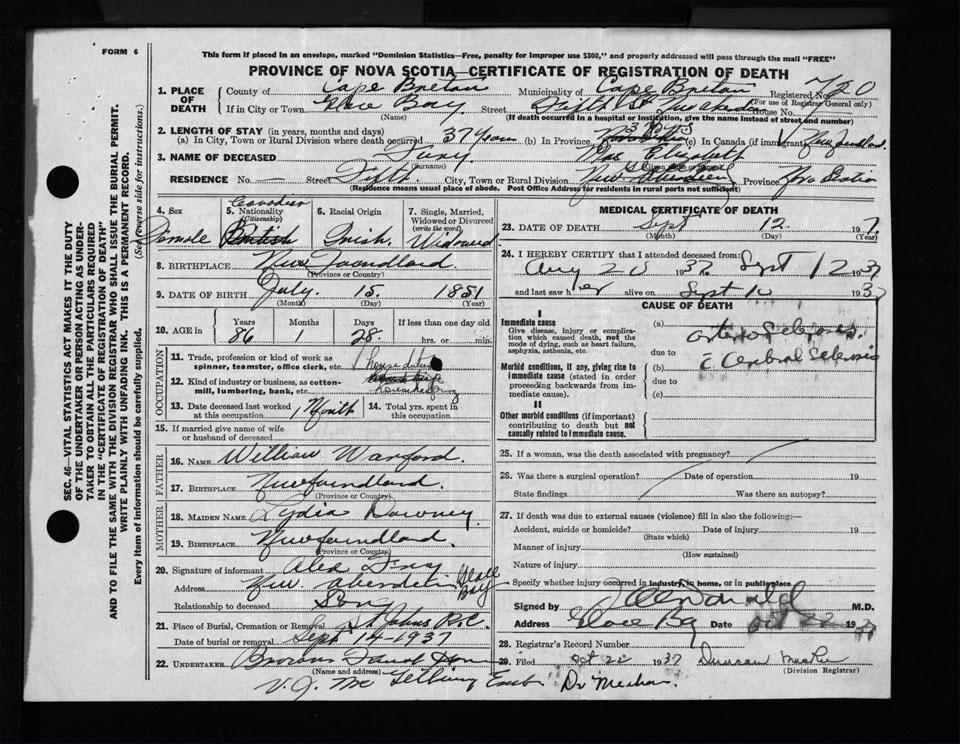 FORM 6
This form if placed in an envelope, marked "Dominion Statistics—Free, penalty for improper use $300," and properly addressed will pass through the mail "FREE"
PROVINCE OF NOVA SCOTIA—CERTIFICATE OF REGISTRATION OF DEATH
1. PLACE OF DEATH
County of Cape Breton Municipality of Cape Breton Registered No. 720
(For use of Registrar General only)
If in City or Town Glace Bay Street Fifth St New Aberdeen House No.
(Name) (If death occurred in a hospital or institution, give the name instead of street and number)
2. LENGTH OF STAY (in years, months and days)
(a) In City, Town or Rural Division where death occurred 37 years (b) In Province 37 yrs (c) In Canada (if immigrant) Newfoundland
3. NAME OF DECEASED Mrs Elizabeth
(Surname)
RESIDENCE No. Street Fifth City, Town or Rural Division New Aberdeen Province Nova Scotia
(Residence means usual place of abode. Post Office Address for residents in rural parts not sufficient)
4. Sex Female
5. Nationality (Citizenship) Canadian British
6. Racial Origin Irish
7. Single, Married, Widowed or Divorced (write the word) Widowed
8. BIRTHPLACE Newfoundland
(Province or Country)
9. DATE OF BIRTH July 15 1851
(Month) (Day) (Year)
10. AGE in Years 86 Months 1 Days 28 If less than one day old hrs. or min.
OCCUPATION
11. Trade, profession or kind of work as spinner, teamster, office clerk, etc. House duties
12. Kind of industry or business, as cotton-mill, lumbering, bank, etc. housekeeping
13. Date deceased last worked at this occupation 1 Month
14. Total yrs. spent in this occupation
15. If married give name of wife or husband of deceased
FATHER
16. NAME William Warford
17. BIRTHPLACE Newfoundland
(Province or Country)
MOTHER
18. MAIDEN NAME Lydia Downey
19. BIRTHPLACE Newfoundland
(Province or Country)
20. Signature of informant Alex
Address New Aberdeen Glace Bay
Relationship to deceased Son
21. Place of Burial, Cremation or Removal St Johns R.C.
Date of burial or removal Sept 14-1937
22. UNDERTAKER Browns
(Name and address)
V. J. Mc Emb. Dr Meehan.
MEDICAL CERTIFICATE OF DEATH
23. DATE OF DEATH Sept 12 1937
(Month) (Day) (Year)
24. I HEREBY CERTIFY that I attended deceased from:
Aug 20 1937 Sept 12 1937
and last saw her alive on Sept 10 1937
CAUSE OF DEATH
I
Immediate cause
Give disease, injury or complication which caused death, not the mode of dying, such as heart failure, asphyxia, asthenia, etc.
Morbid conditions, if any, giving rise to immediate cause (stated in order proceeding backwards from immediate cause).
II
Other morbid conditions (important) contributing to death but not causally related to immediate cause.
(a) arterio Sclerosis.
due to
(b) c Cerebral Sclerosis
due to
(c)
25. If a woman, was the death associated with pregnancy?
26. Was there a surgical operation? Date of operation 19
State findings Was there an autopsy?
27. If death was due to external causes (violence) fill in also the following:—
Accident, suicide or homicide? Date of injury 19
(State which)
Manner of injury
(How sustained)
Nature of injury
Specify whether injury occurred in industry, in home, or in public place
Signed by M.D.
Address Glace Bay Date Oct 22 1937
28. Registrar's Record Number
29. Filed Oct 22 1937 Duncan
(Division Registrar)
SEC. 46—VITAL STATISTICS ACT MAKES IT THE DUTY
OF THE UNDERTAKER OR PERSON ACTING AS UNDER-
TAKER TO OBTAIN ALL THE PARTICULARS REQUIRED
IN THE "CERTIFICATE OF REGISTRATION OF DEATH"
AND TO FILE THE SAME WITH THE DIVISION REGISTRAR WHO SHALL ISSUE THE BURIAL PERMIT.
WRITE PLAINLY WITH UNFADING INK. THIS IS A PERMANENT RECORD.
Every item of information should be carefully supplied. (See reverse side for instructions.)